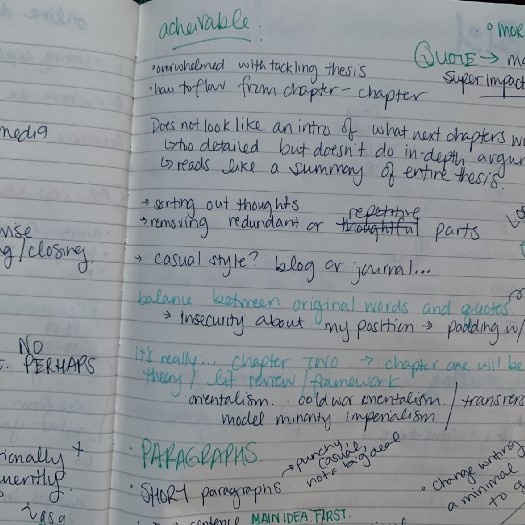 acheivable:
• MOR
QUOTE → m
super impact
• overwhelmed with tackling thesis
• how to flow from chapter - chapter
Does not look like an intro of what next chapters w
↳ too detailed but doesn't do in-depth argu
↳ reads like a summary of entire thesis.
→ sorting out thoughts
repetitive
→ removing redundant or thoughtful parts
→ casual style? blog or journal...
balance between original words and quotes
→ Insecurity about my position → padding w/
it's really... chapter TWO → chapter one will be
theory / lit review / framework
orientalism.. cold war orientalism / transfers
model minority imperialism
• PARAGRAPHS.
• SHORT paragraphs → punchy,
casual,
not a big deal
• change writing
a minimal
to q
sentence MAIN IDEA FIRST.
media
wise
g/closing
NO
PERHAPS
ionally
uently.